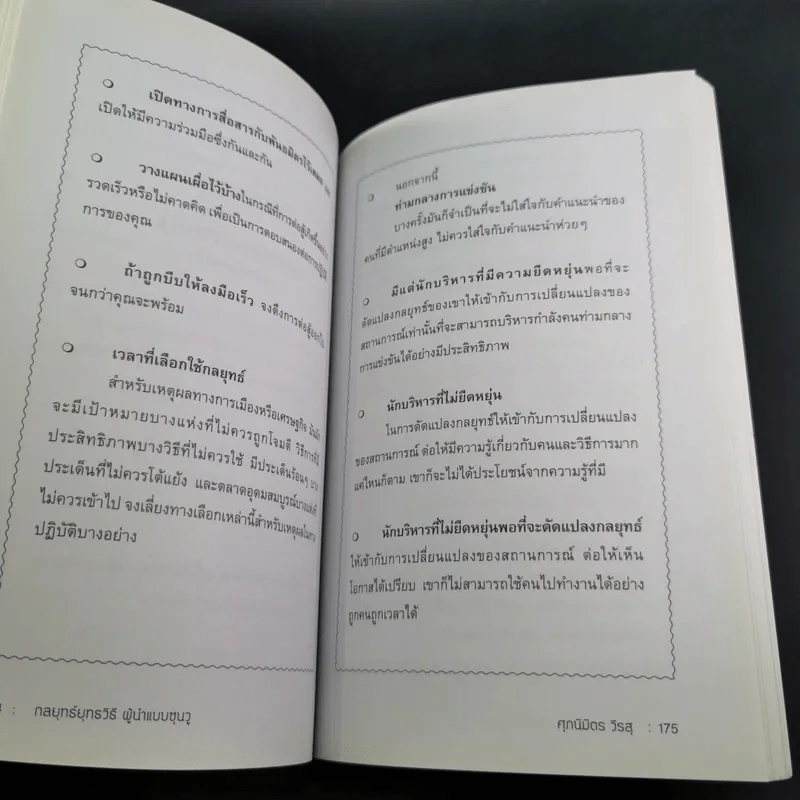 เปิดทางการสื่อสารกับพันธมิตรไว้เสมอ
เปิดให้มีความร่วมมือซึ่งกันและกัน
วางแผนเผื่อไว้บ้างในกรณีที่การต่อสู้เกิดขึ้นอย่าง
รวดเร็วหรือไม่คาดคิด เพื่อเป็นการตอบสนองต่อการปฏิบัติ
การของคุณ
ถ้าถูกบีบให้ลงมือเร็ว จงดึงการต่อสู้ออกไป
จนกว่าคุณจะพร้อม
เวลาที่เลือกใช้กลยุทธ์
สำหรับเหตุผลทางการเมืองหรือเศรษฐกิจ
จะมีเป้าหมายบางแห่งที่ไม่ควรถูกโจมตี วิธีการที่มี
ประสิทธิภาพบางวิธีที่ไม่ควรใช้ มีประเด็นร้อนๆ บาง
ประเด็นที่ไม่ควรโต้แย้ง และตลาดอุดมสมบูรณ์บางแห่งที่
ไม่ควรเข้าไป จงเลี่ยงทางเลือกเหล่านี้สำหรับเหตุผลในทาง
ปฏิบัติบางอย่าง
: กลยุทธ์ยุทธวิธี ผู้นำแบบซุนวู
นอกจากนี้
ท่ามกลางการแข่งขัน
บางครั้งมันก็จำเป็นที่จะไม่ใส่ใจกับคำแนะนำของ
คนที่มีตำแหน่งสูง ไม่ควรใส่ใจกับคำแนะนำห่วยๆ
มีแต่นักบริหารที่มีความยืดหยุ่นพอที่จะ
ดัดแปลงกลยุทธ์ของเขาให้เข้ากับการเปลี่ยนแปลงของ
สถานการณ์เท่านั้นที่จะสามารถบริหารกำลังคนท่ามกลาง
การแข่งขันได้อย่างมีประสิทธิภาพ
นักบริหารที่ไม่ยืดหยุ่น
ในการดัดแปลงกลยุทธ์ให้เข้ากับการเปลี่ยนแปลง
ของสถานการณ์ ต่อให้มีความรู้เกี่ยวกับคนและวิธีการมาก
แค่ไหนก็ตาม เขาก็จะไม่ได้ประโยชน์จากความรู้ที่มี
นักบริหารที่ไม่ยืดหยุ่นพอที่จะดัดแปลงกลยุทธ์
ให้เข้ากับการเปลี่ยนแปลงของสถานการณ์ ต่อให้เห็น
โอกาสได้เปรียบ เขาก็ไม่สามารถใช้คนไปทำงานได้อย่าง
ถูกคนถูกเวลาได้
ศุภนิมิตร วีรสุ : 175